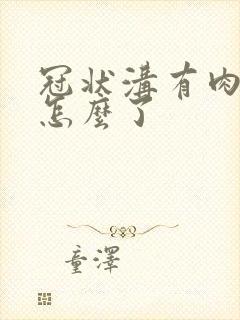 冠状溝有肉
怎麼了
童澤